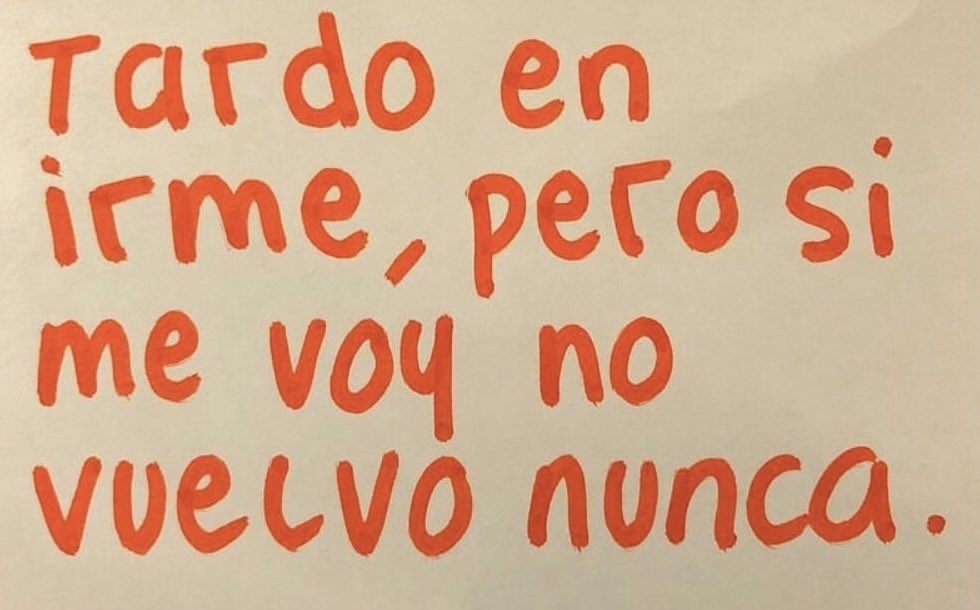 Tardo en
irme, pero si
me voy no
vuelvo nunca.